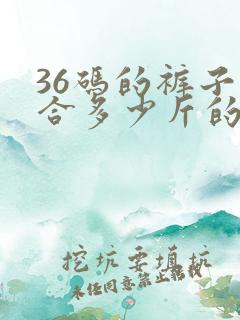 36碼的裤子
合多少斤的
挖坑要填坑
未任同意禁止转载